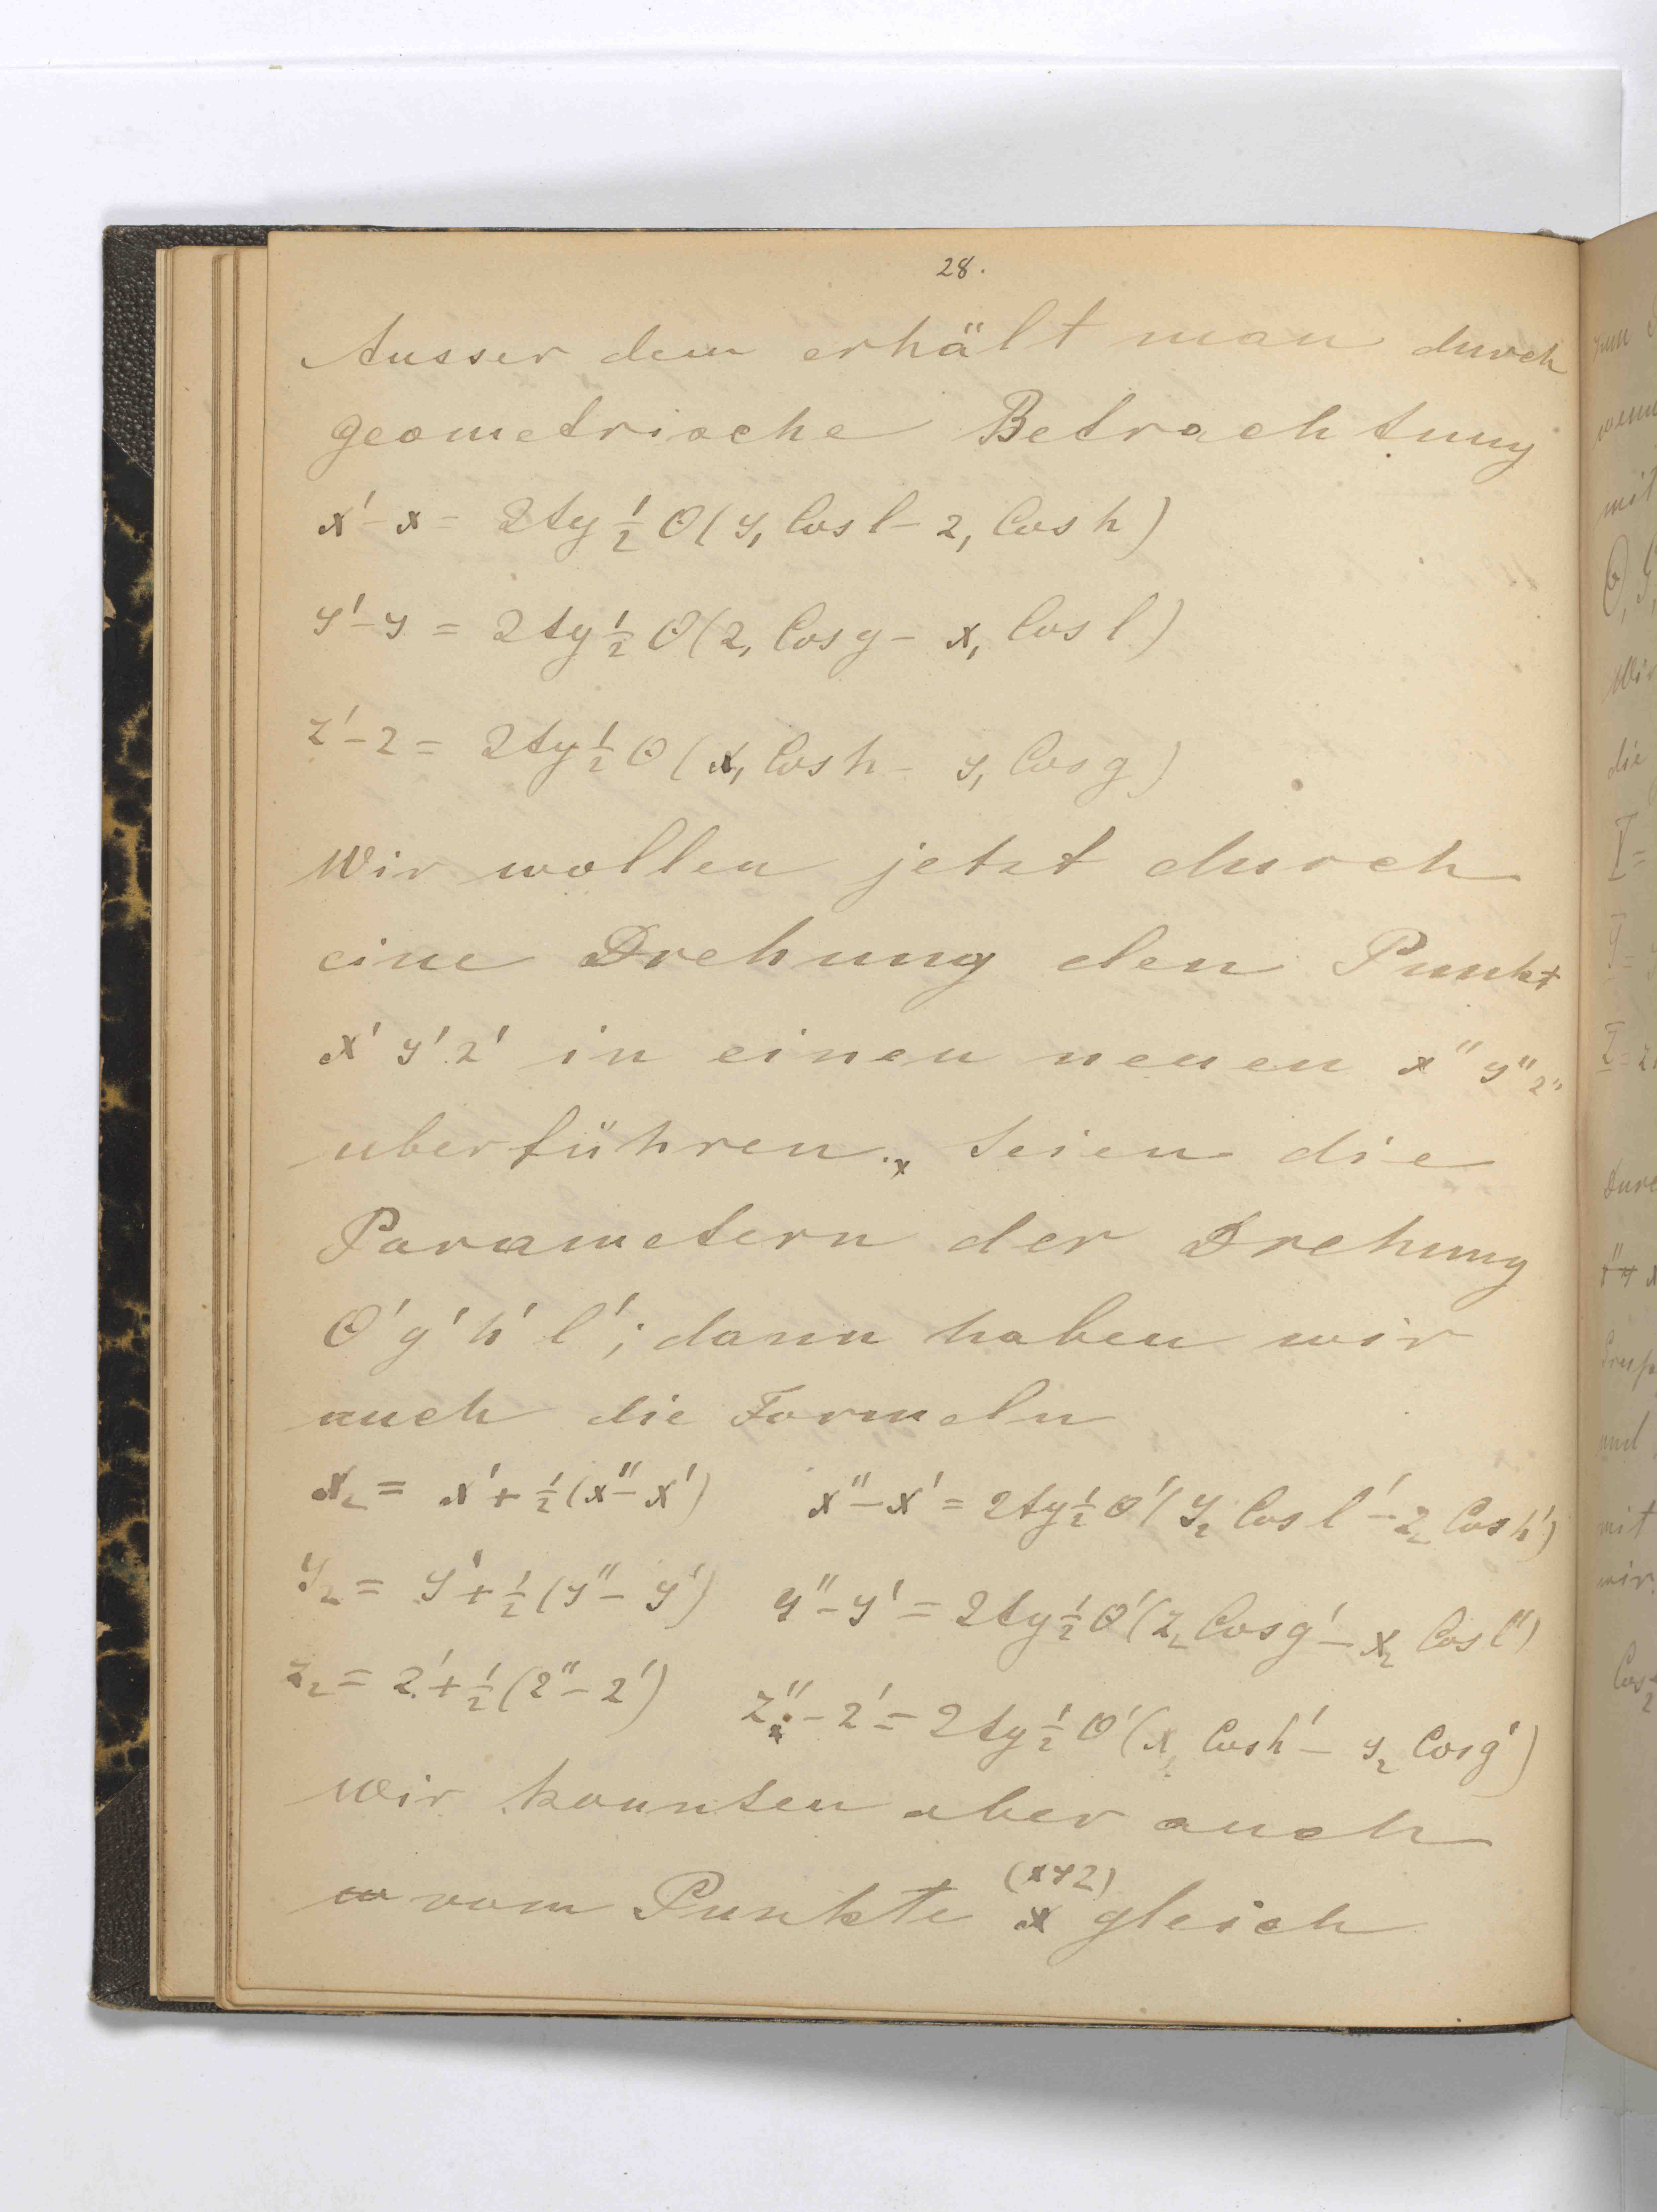 28.
Ausser dem erhält man durch
geometrische Betrachtung
x' - x = 2tg ½ Θ (y₁ Cos l - z₁ Cos h)
y' - y = 2tg ½ Θ (z₁ Cos g - x₁ Cos l)
z' - z = 2tg ½ Θ (x₁ Cos h - y₁ Cos g)
Wir wollen jetzt durch
eine Drehung den Punkt
x' y' z' in einen neuen x'' y'' z''
uberführen. Seien die
Parametern der Drehung
Θ' g' h' l'; dann haben wir
auch die Formeln
x₂ = x' + ½ (x'' - x') x'' - x' = 2tg ½ Θ' (y₂ Cos l' - z₂ Cos h')
y₂ = y' + ½ (y'' - y') y'' - y' = 2tg ½ Θ' (z₂ Cos g' - x₂ Cos l')
z₂ = z' + ½ (z'' - z') z'' - z' = 2tg ½ Θ' (x₂ Cos h' - y₂ Cos g')
Wir konnten aber auch
vom Punkte (xyz) gleich